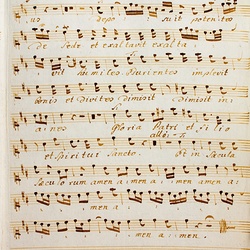 us depo suit potentes
de Sede et exaltavit exalta
vit humiles Esurientes implevit
bonis et Divites dimisit dimisit in
anes Gloria Patri et Filio
et Spiritui Sancto et in Sæcula
Sæculorum amen a men a men amen a
men a
a men a men